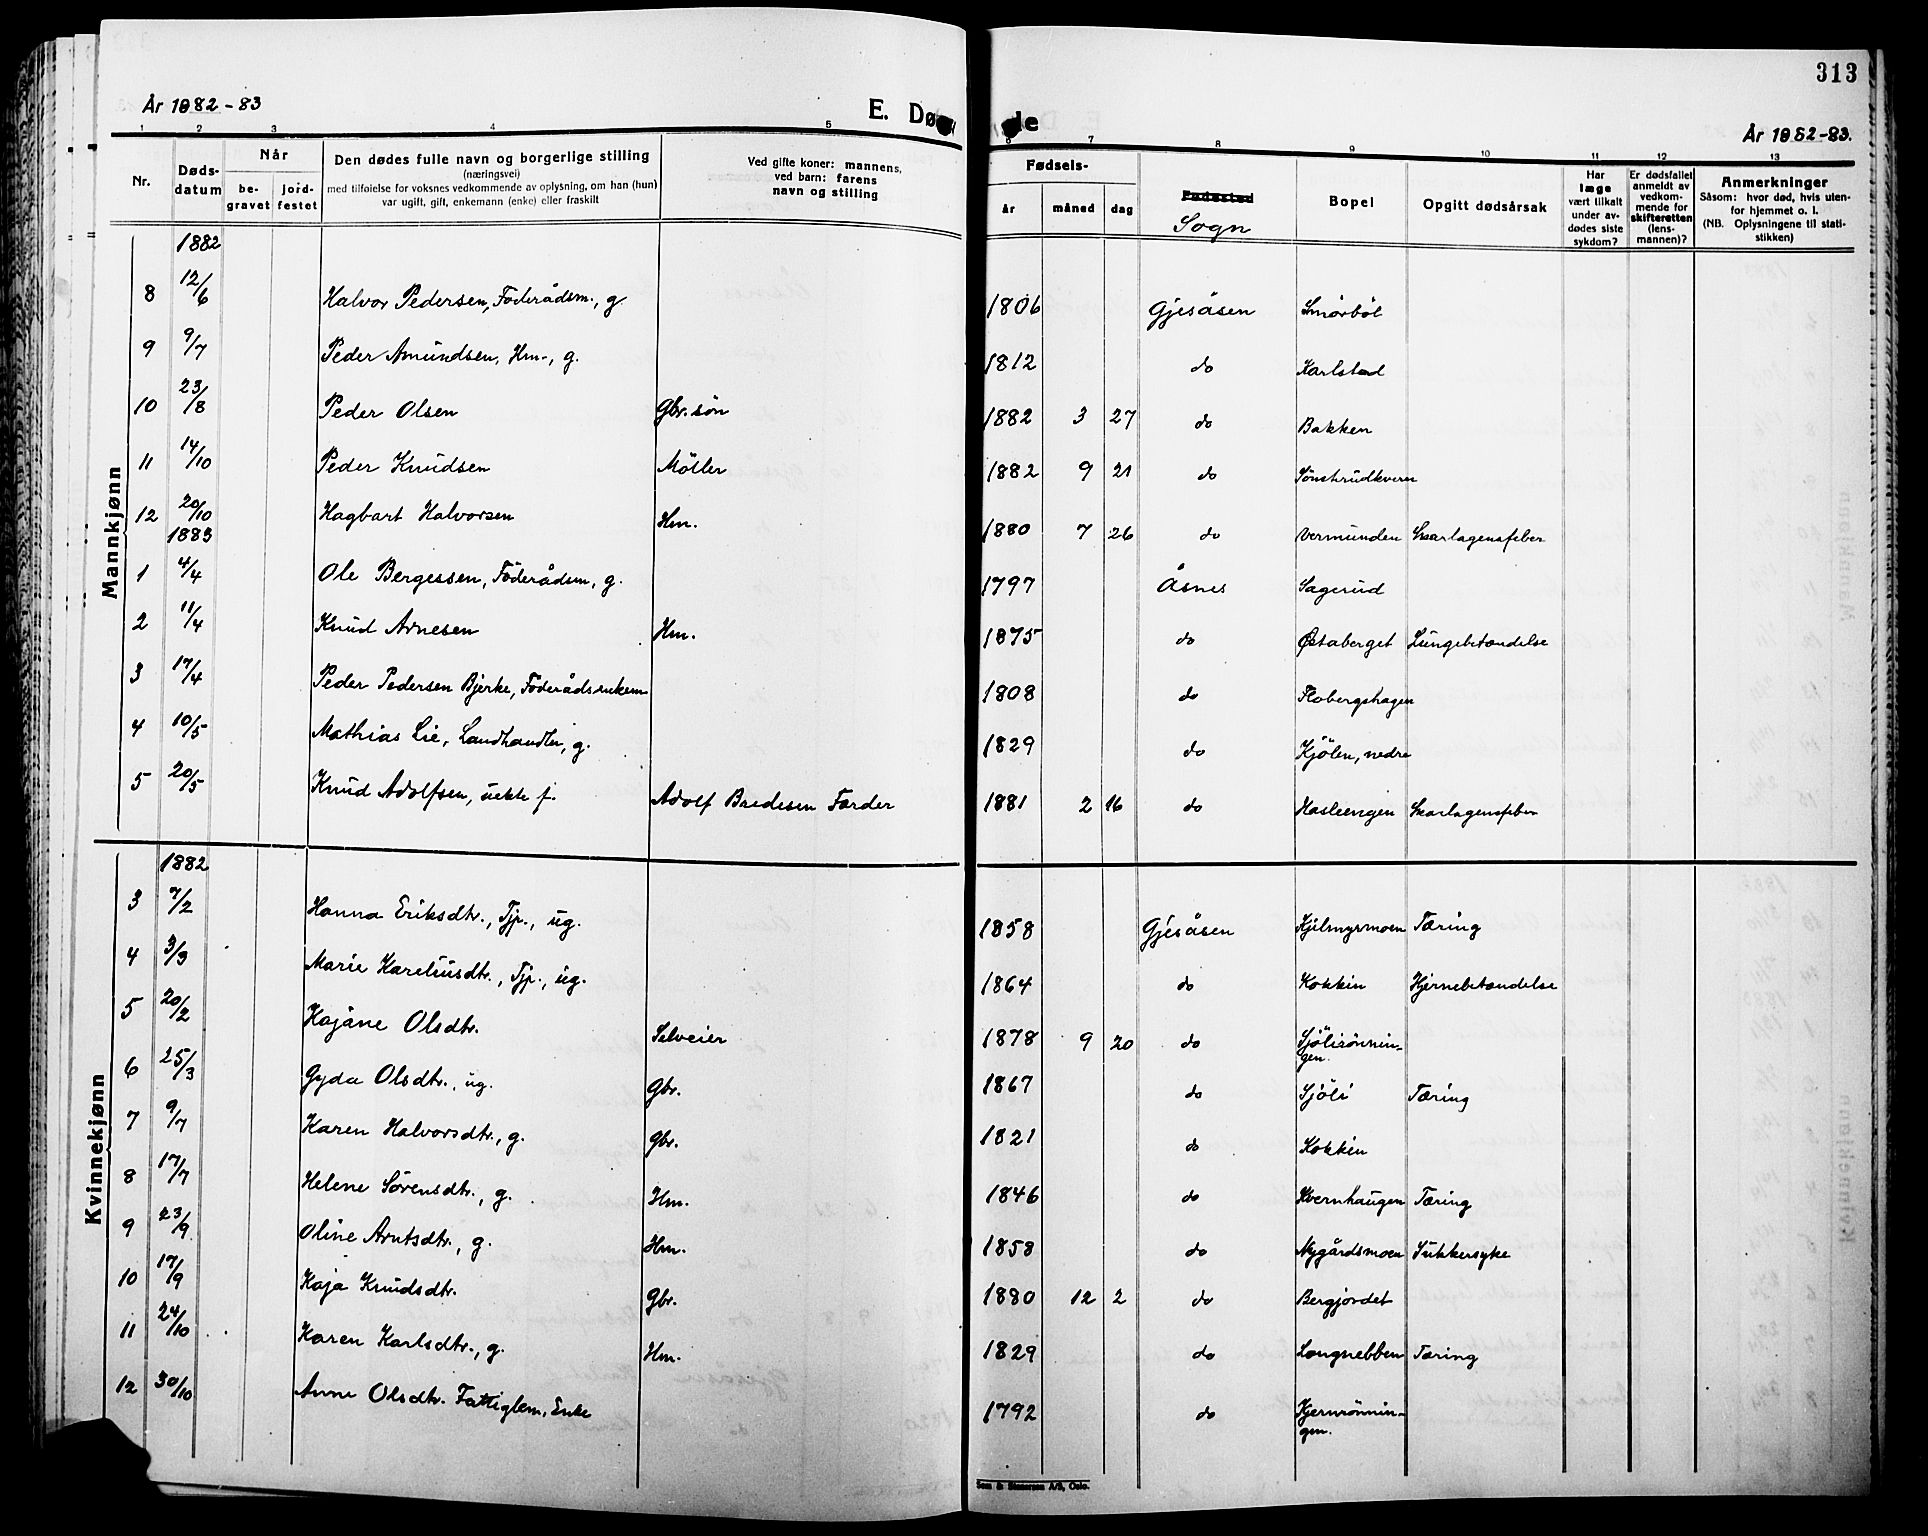 313
År 1882-83
E. Døde
År 1882-83.
1 2 3 4 5 6 7 8 9 10 11 12 13
Nr.
Døds-
datum
Når
be-
gravet
jord-
festet
Den dødes fulle navn og borgerlige stilling
(næringsvei)
med tilføielse for voksnes vedkommende av oplysning, om han (hun)
var ugift, gift, enkemann (enke) eller fraskilt
Ved gifte koner: mannens,
ved barn: farens
navn og stilling
Fødsels-
år måned dag
Fødested
Sogn
Bopel
Opgitt dødsårsak
Har
læge
vært tilkalt
under av-
dødes siste
sykdom?
Er dødsfallet
anmeldt av
vedkom-
mende for
skifteretten
(lens-
mannen)?
Anmerkninger
Såsom: hvor død, hvis uten-
for hjemmet o. l.
(NB. Oplysningene til stati-
stikken)
Mannkjønn
1882
8 12/6 Halvor Pedersen, Föderådsm., g 1806 Gjesåsen Smörböl
9 9/7 Peder Amundsen, Hm., g. 1812 do Karlstad
10 23/8 Peder Olsen Gbr. søn 1882 3 27 do Bakken
11 14/10 Peder Knudsen Möller 1882 9 21 do Sönstrudkvern
12 20/10 Hagbart Halvorsen Hm. 1880 7 26 do Vermunden Skarlagensfeber
1883
1 4/4 Ole Bergessen, Föderådsm, g. 1797 Åsnes Sagerud
2 11/4 Knud Arnesen Hm. 1875 do Østaberget Lungebetændelse
3 17/4 Peder Pedersen Bjerke, Föderådsenkem 1808 do Flobergshagen
4 10/5 Mathias Lie, Landhandler, g. 1829 do Kjölen, nedre
5 20/5 Knud Adolfsen, uekte f. Adolf Bredesen Førder 1881 2 16 do Hasleengen Skarlagensfeber
Kvinnekjønn
1882
3 7/2 Hanna Eriksdtr., Tjp., ug. 1858 Gjesåsen Kjelmyrmoen Tæring
4 3/3 Marie Kareliusdtr., Tjp., ug. 1864 do Kokkin Hjernebetændelse
5 20/2 Kajane Olsdtr. Selveier 1878 9 20 do Sjölirönnin-
gen.
6 25/3 Gyda Olsdtr., ug. Gbr. 1867 do Sjöli Tæring
7 9/7 Karen Halvorsdtr., g. Gbr. 1821 do Kokkin
8 17/7 Helene Sörensdtr., g. Hm. 1846 do Kvernhaugen Tæring
9 23/9 Oline Arntsdtr., g. Hm. 1858 do Nygårdsmoen Sukkersyke
10 17/9 Kaja Knudsdtr. Gbr. 1880 12 2 do Bergjordet
11 24/10 Karen Karlsdtr., g. Hm. 1829 do Langnebben Tæring
12 30/10 Anne Olsdtr. Fattiglem, Enke 1792 do Kjernrönnin-
gen.
Sem & Stenersen A/S, Oslo.